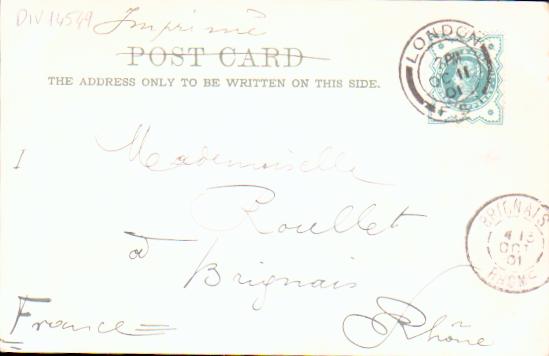 DIV 14549
Imprimé
POST CARD
THE ADDRESS ONLY TO BE WRITTEN ON THIS SIDE.
LONDON
OC 11
01
I
Mademoiselle
Roullet
à
Brignais
France
Rhône
BRIGNAIS
13
OCT
01
RHONE